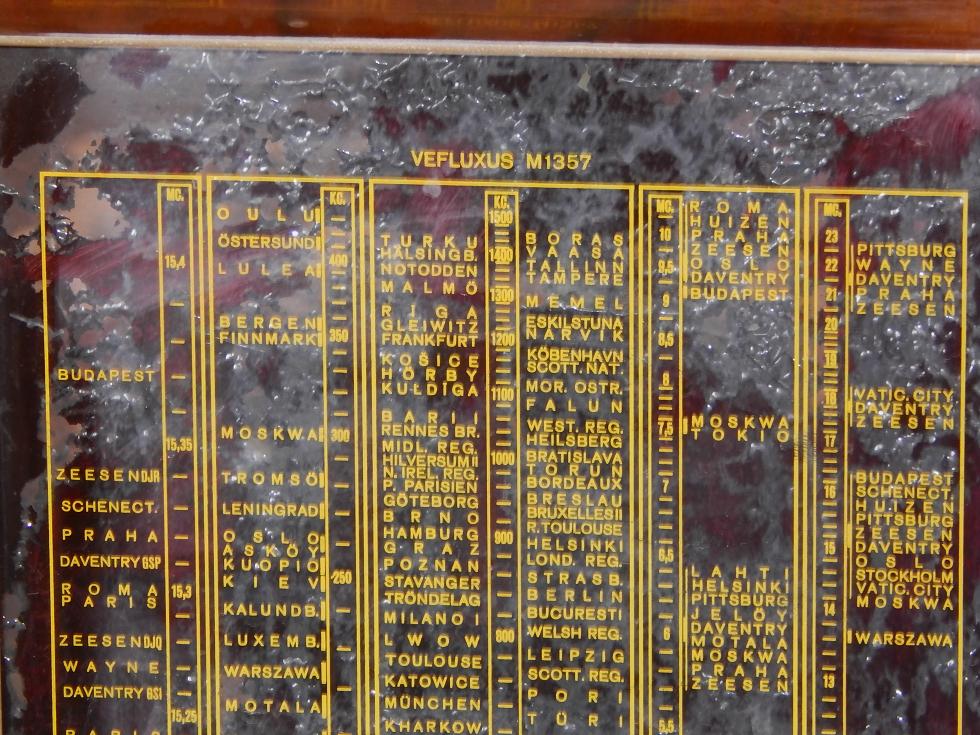 VEFLUXUS M1357
MC.
15,4
15,35
15,3
15,25
BUDAPEST
ZEESEN DJR
SCHENECT.
PRAHA
DAVENTRY GSP
ROMA
PARIS
ZEESEN DJQ
WAYNE
DAVENTRY GSI
PARIS
KC.
400
350
300
250
OULU
ÖSTERSUND
LULEA
BERGEN
FINNMARK
MOSKWA
TROMSÖ
LENINGRAD
OSLO
ASKÖY
KUOPIO
KIEV
KALUNDB.
LUXEMB.
WARSZAWA
MOTALA
TURKU
HÄLSINGB.
NOTODDEN
MALMÖ
RIGA
GLEIWITZ
FRANKFURT
KOŠICE
HÖRBY
KULDIGA
BARI I
RENNES BR.
MIDL. REG.
HILVERSUM II
N. IREL. REG.
P. PARISIEN
GÖTEBORG
BRNO
HAMBURG
GRAZ
POZNAN
STAVANGER
TRÖNDELAG
MILANO I
LWOW
TOULOUSE
KATOWICE
MÜNCHEN
KHARKOW
KC.
1500
1400
1300
1200
1100
1000
900
800
BORAS
VAASA
TALLINN
TAMPERE
MEMEL
ESKILSTUNA
NARVIK
KÖBENHAVN
SCOTT. NAT.
MOR. OSTR.
FALUN
WEST. REG.
HEILSBERG
BRATISLAVA
TORUN
BORDEAUX
BRESLAU
BRUXELLES II
R. TOULOUSE
HELSINKI
LOND. REG.
STRASB.
BERLIN
BUCURESTI
WELSH REG.
LEIPZIG
SCOTT. REG.
PORI
TÜRI
MC.
10
9,5
9
8,5
8
7,5
7
6,5
6
5,5
ROMA
HUIZEN
PRAHA
ZEESEN
OSLO
DAVENTRY
BUDAPEST
MOSKWA
TOKIO
LAHTI
HELSINKI
PITTSBURG
JELÖY
DAVENTRY
MOTALA
MOSKWA
PRAHA
ZEESEN
MC.
23
22
21
20
19
18
17
16
15
14
13
PITTSBURG
WAYNE
DAVENTRY
PRAHA
ZEESEN
VATIC. CITY
DAVENTRY
ZEESEN
BUDAPEST
SCHENECT.
HUIZEN
PITTSBURG
ZEESEN
DAVENTRY
OSLO
STOCKHOLM
VATIC. CITY
MOSKWA
WARSZAWA